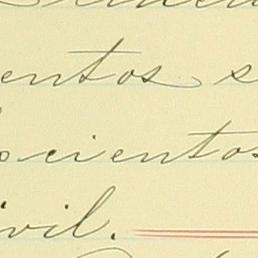 entos s
cientos
ivil.